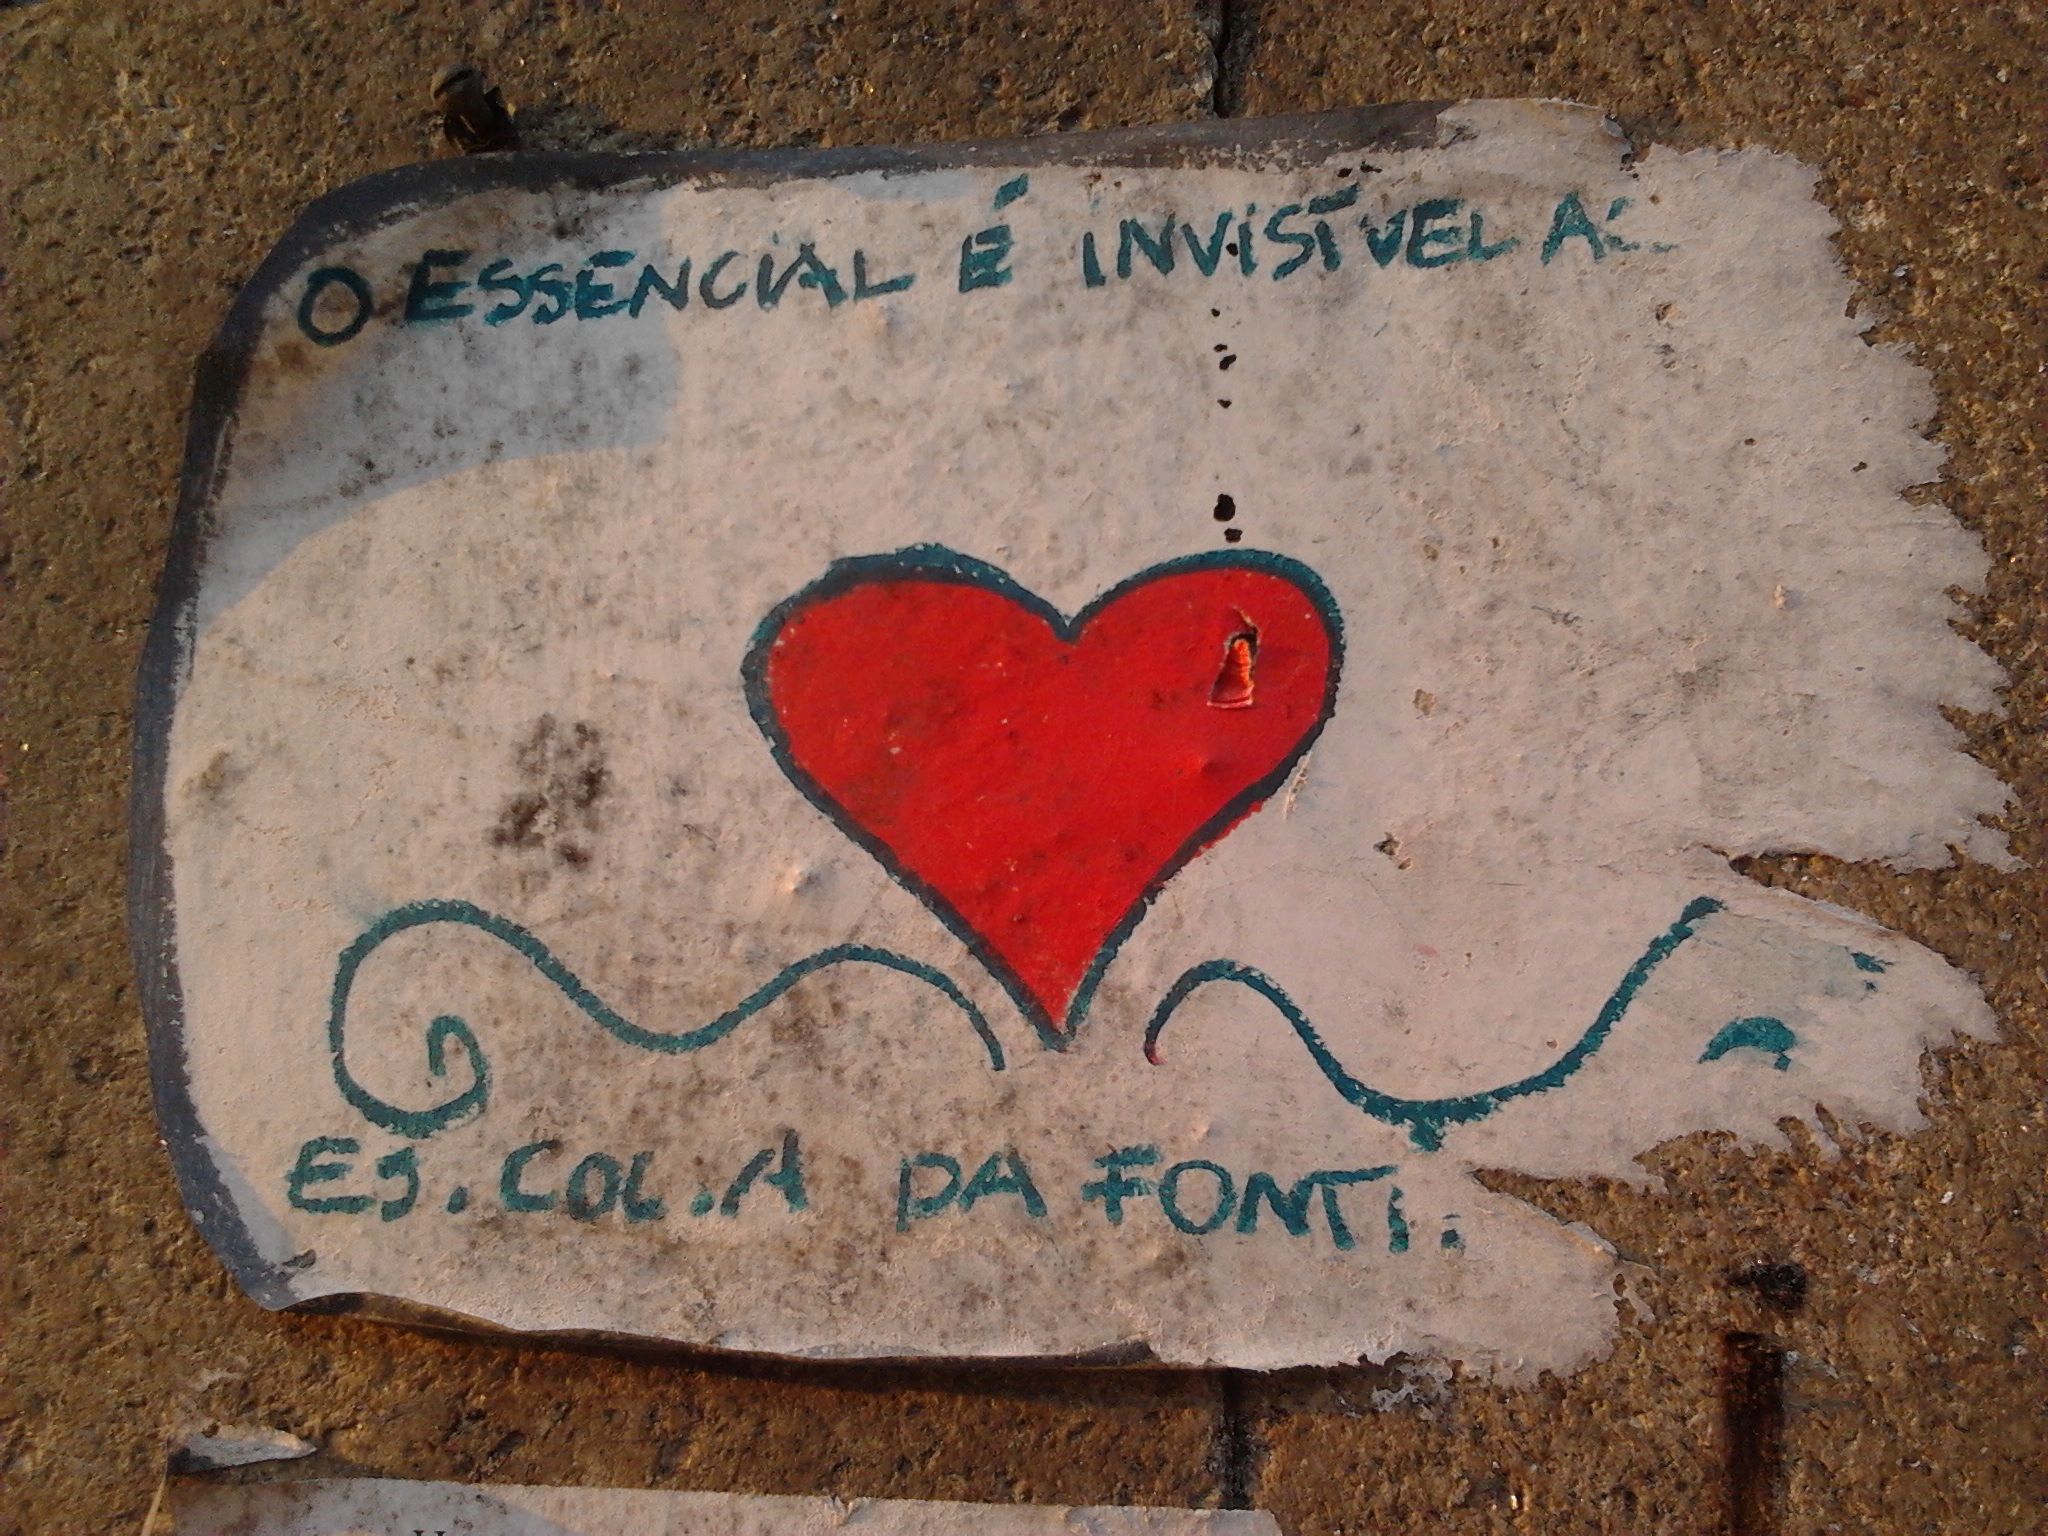 O ESSENCIAL É INVISÍVEL
ES.COL.A DA